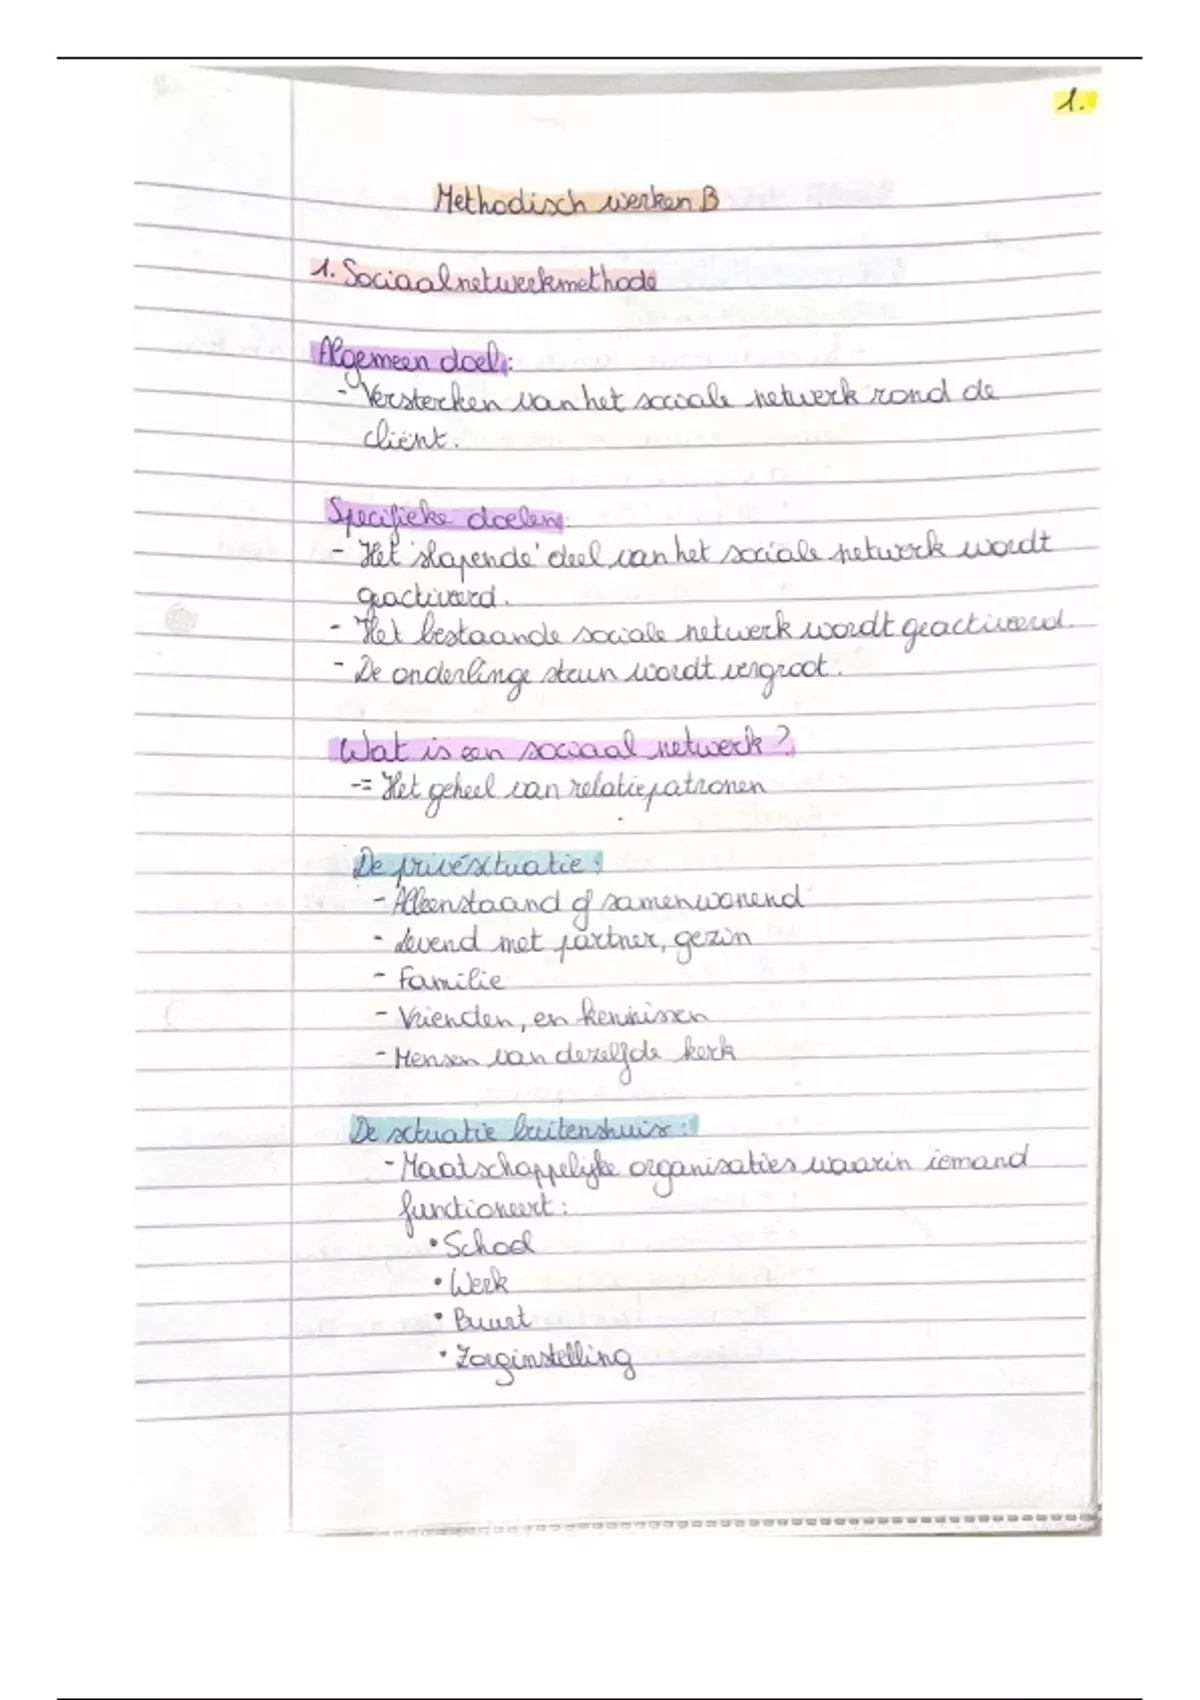 1.
Methodisch werken B
1. Sociaalnetwerkmethode
Algemeen doel:
- Versterken van het sociale netwerk rond de
cliënt.
Specifieke doelen:
- Het 'slapende' deel van het sociale netwerk wordt
geactiveerd.
- Het bestaande sociale netwerk wordt geactiveerd.
- De onderlinge steun wordt vergroot.
Wat is een sociaal netwerk?
-= Het geheel van relatiepatronen
De privésituatie:
- Alleenstaand of samenwonend
- Levend met partner, gezin
- Familie
- Vrienden, en kennissen
- Mensen van dezelfde kerk
De situatie buitenshuis:
- Maatschappelijke organisaties waarin iemand
functioneert:
• School
• Werk
• Buurt
• Zorginstelling